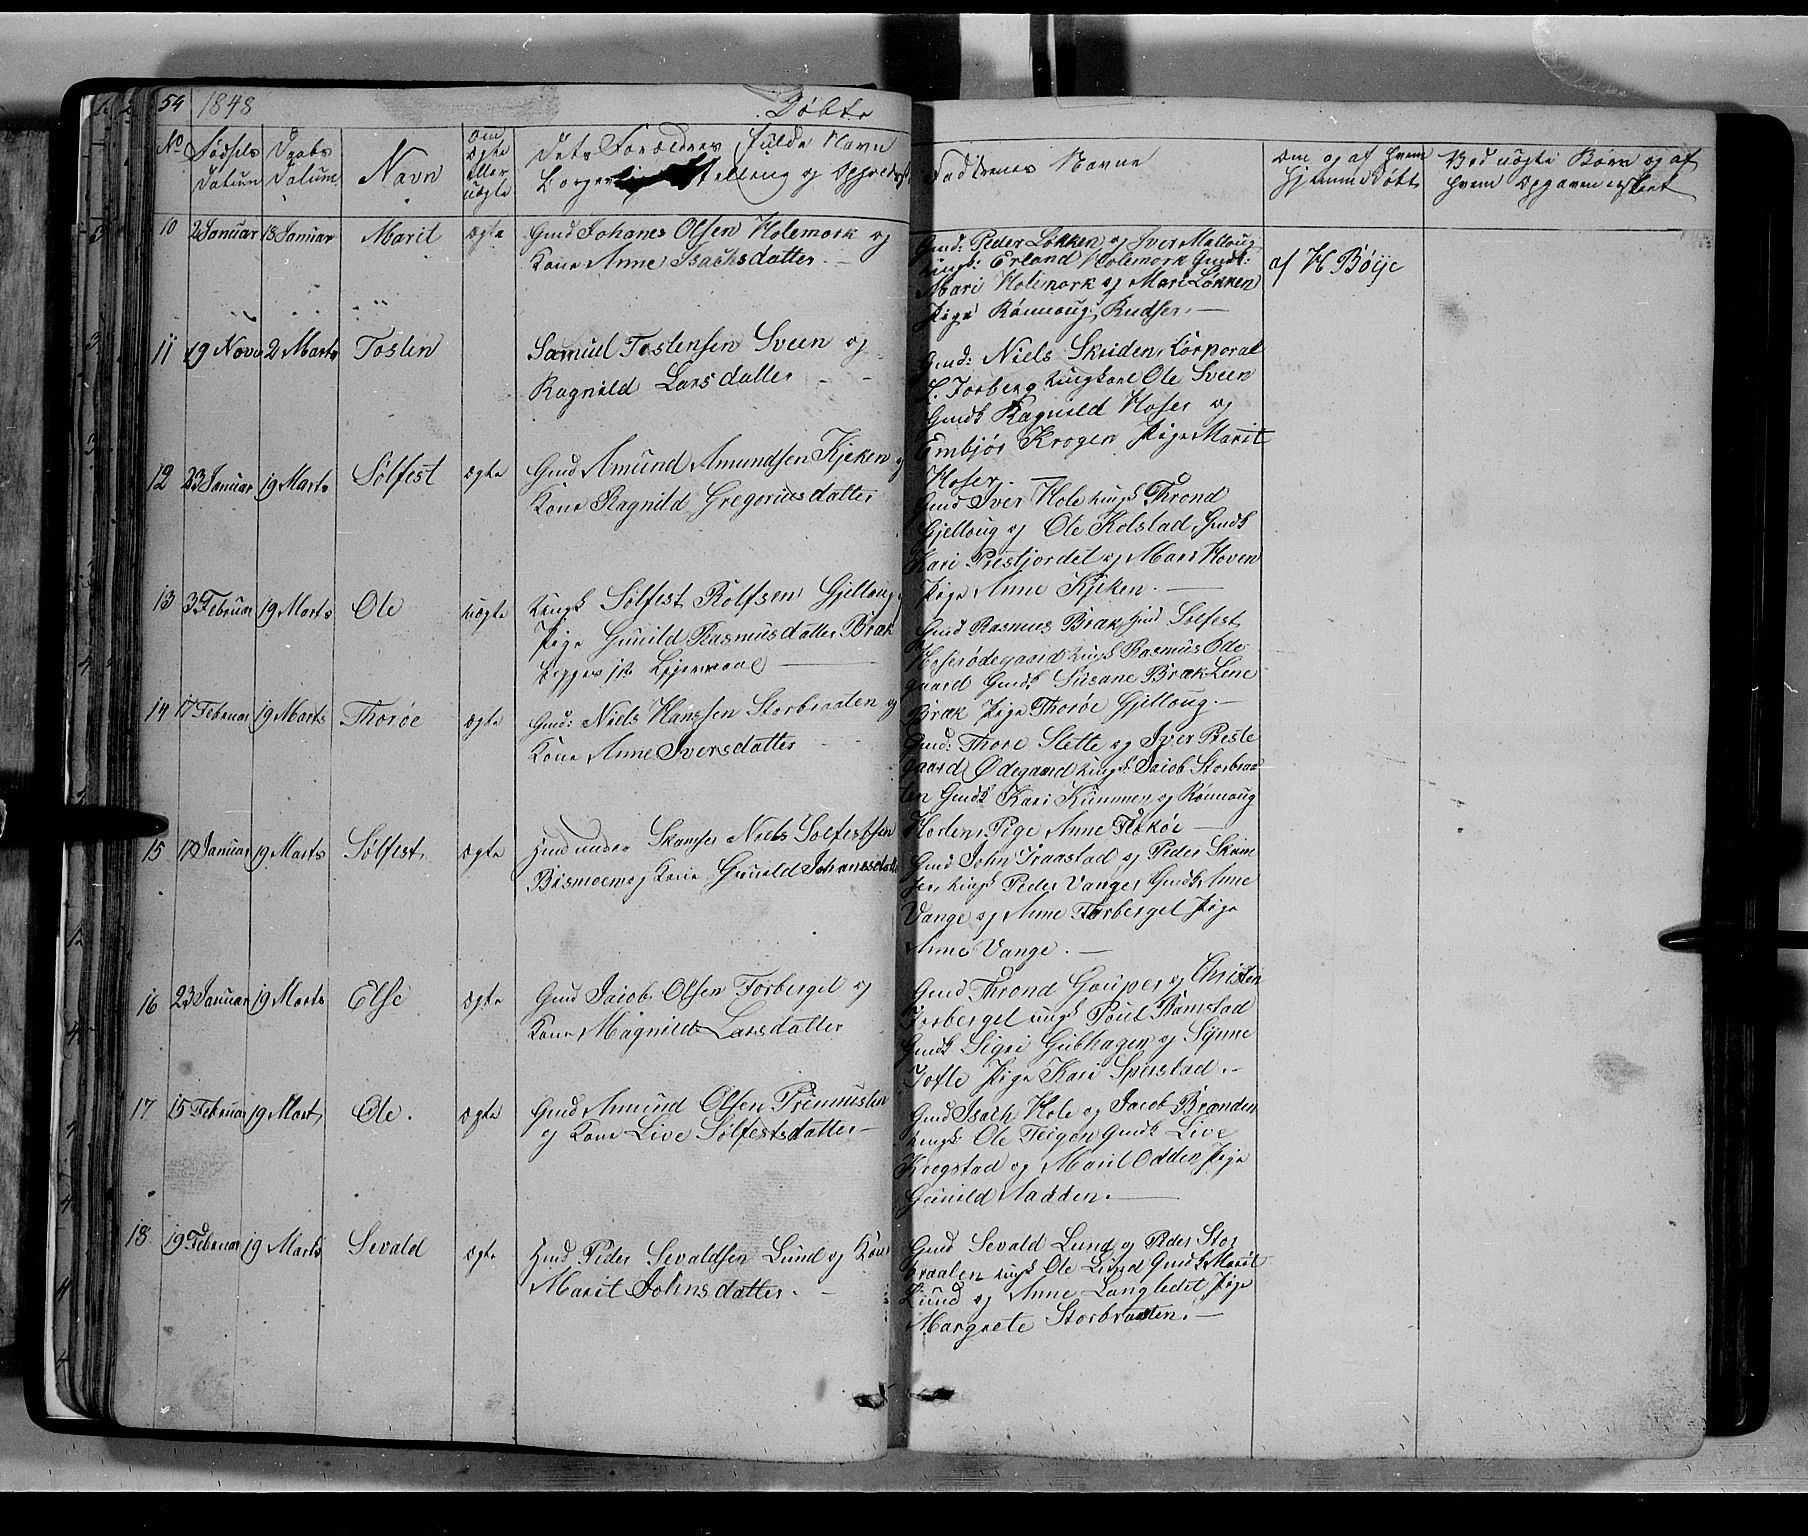 54 1848 Døbte
No Fødsels Datum Daabs Datum Navn om ægte eller uægte Dets Forældres fulde Navn
Faddernes Navne
om og af hvem hjemmedøbt
Ved uægte Børn og af hvem
10 2 Januar 13 Januar Marit ægte Gmd Johanes Olsen Holemork og
Kone Anne Isachsdatter. —
Gmd: Peder Løkken og Iver
Ungk: Erland Holemork Gmdk:
Mari Holemork og Mari Løkken
Pige Rønnoug Rudser. —
af H Böye
11 19 Novr 2 Marts Tosten Samuel Tostensen Sveen og
Ragnild Larsdatter
Gmd: Niels Skriden, Korporal
Forberg Ungkarl Ole Sveen
Gmdk Ragnild Hofer og
Embjør Krogen Pige Marit
Hofer. —
12 23 Januar 19 Marts Sølfest ægte Gmd Amund Amundsen Kjeken og
Kone Ragnild Gregoriusdatter
Gmd Iver Hole Ungk Thrond
Gjelloug og Ole Kolstad, Gmdk
Kari Prestjordet og Mari Hoven
Pige Anne Kjeken. —
13 3 Februar 19 Marts Ole uægte Ungk Sølfest Rolfsen Gjelloug
Pige Gunild Rasmusdatter Bræk
Leiermaal —
Gmd Rasmus Bræk, Gmd Sølfest
Hoferødegaard Ungk Rasmus Øde
gaard Gmdk Susane Bræk Lene
Bræk Pige Thorøe Gjelloug. —
14 17 Februar 19 Marts Thorøe ægte Gmd: Niels Hanssen Storbraaten og
Kone Anne Iversdatter
Gmd: Thore Slette og Iver Preste
gaard Ødegaard Ungk: Jacob Storbraa
ten Gmdk Kari Kummen og Rønnoug
Horten, Pige Anne Flekøe —
15 10 Januar 19 Marts Sølfest. ægte Hmd under Skamser Niels Sølfestsen
Bismoemog Kone Gunild Johannesdatter
Gmd John Graastad og Peder Skam
ser, Ungk Peder Vange, Gmdk Anne
Vange og Anne Forberget Pige
Anne Vange. —
16 23 Januar 19 Marts Else ægte Gmd Jacob Olsen Forberget og
Kone Magnild Larsdatter
Gmd Thrond Gauper og Christen
Forberget Ungk Poul Ramstad
Gmdk Sigri Gubhagen og Synne
Tofte Pige Kari Sperstad. —
17 15 Februar 19 Mart, Ole. ægte Gmd Amund Olsen
og Kone Live Sølfestsdatter —
Gmd Isach Hole og Jacob Brenden
Ungk: Ole Teigen Gmdk Live
Krogstad og Marit Odden Pige
Gunild Nadden. —
18 19 Februar 19 Marts Sevald ægte Hmd Peder Sevaldsen Lund og Kone
Marit Johnsdatter. —
Gmd Sevald Lund og Peder Stor
braaten Ungk Ole Lund Gmdk Marit
Lund og Anne Langledet Pige
Margrete Storbraaten. —